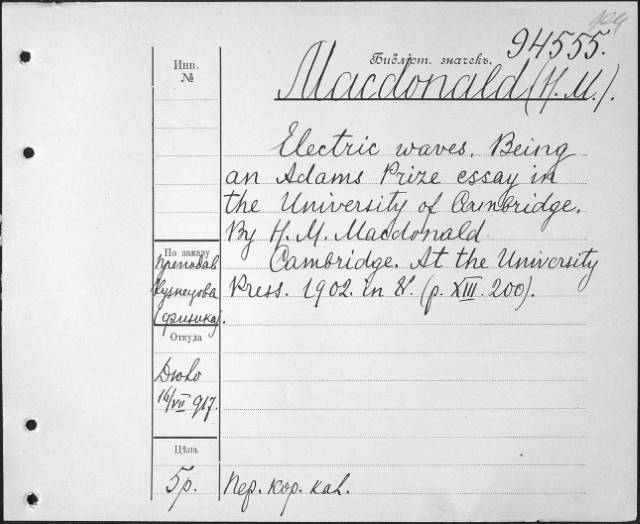 94555.
Библіот. значекъ.
Macdonald (H. M.).
Инв.
№
Electric waves. Being
an Adams Prize essay in
the University of Cambridge.
By H. M. Macdonald.
Cambridge. At the University
Press. 1902. in 8º. (p. XIII. 200).
По заказу
Преподав
Кузнецова
(физика).
Откуда
16/VII 917.
Цѣна
5р.
Пер. кор. кал.